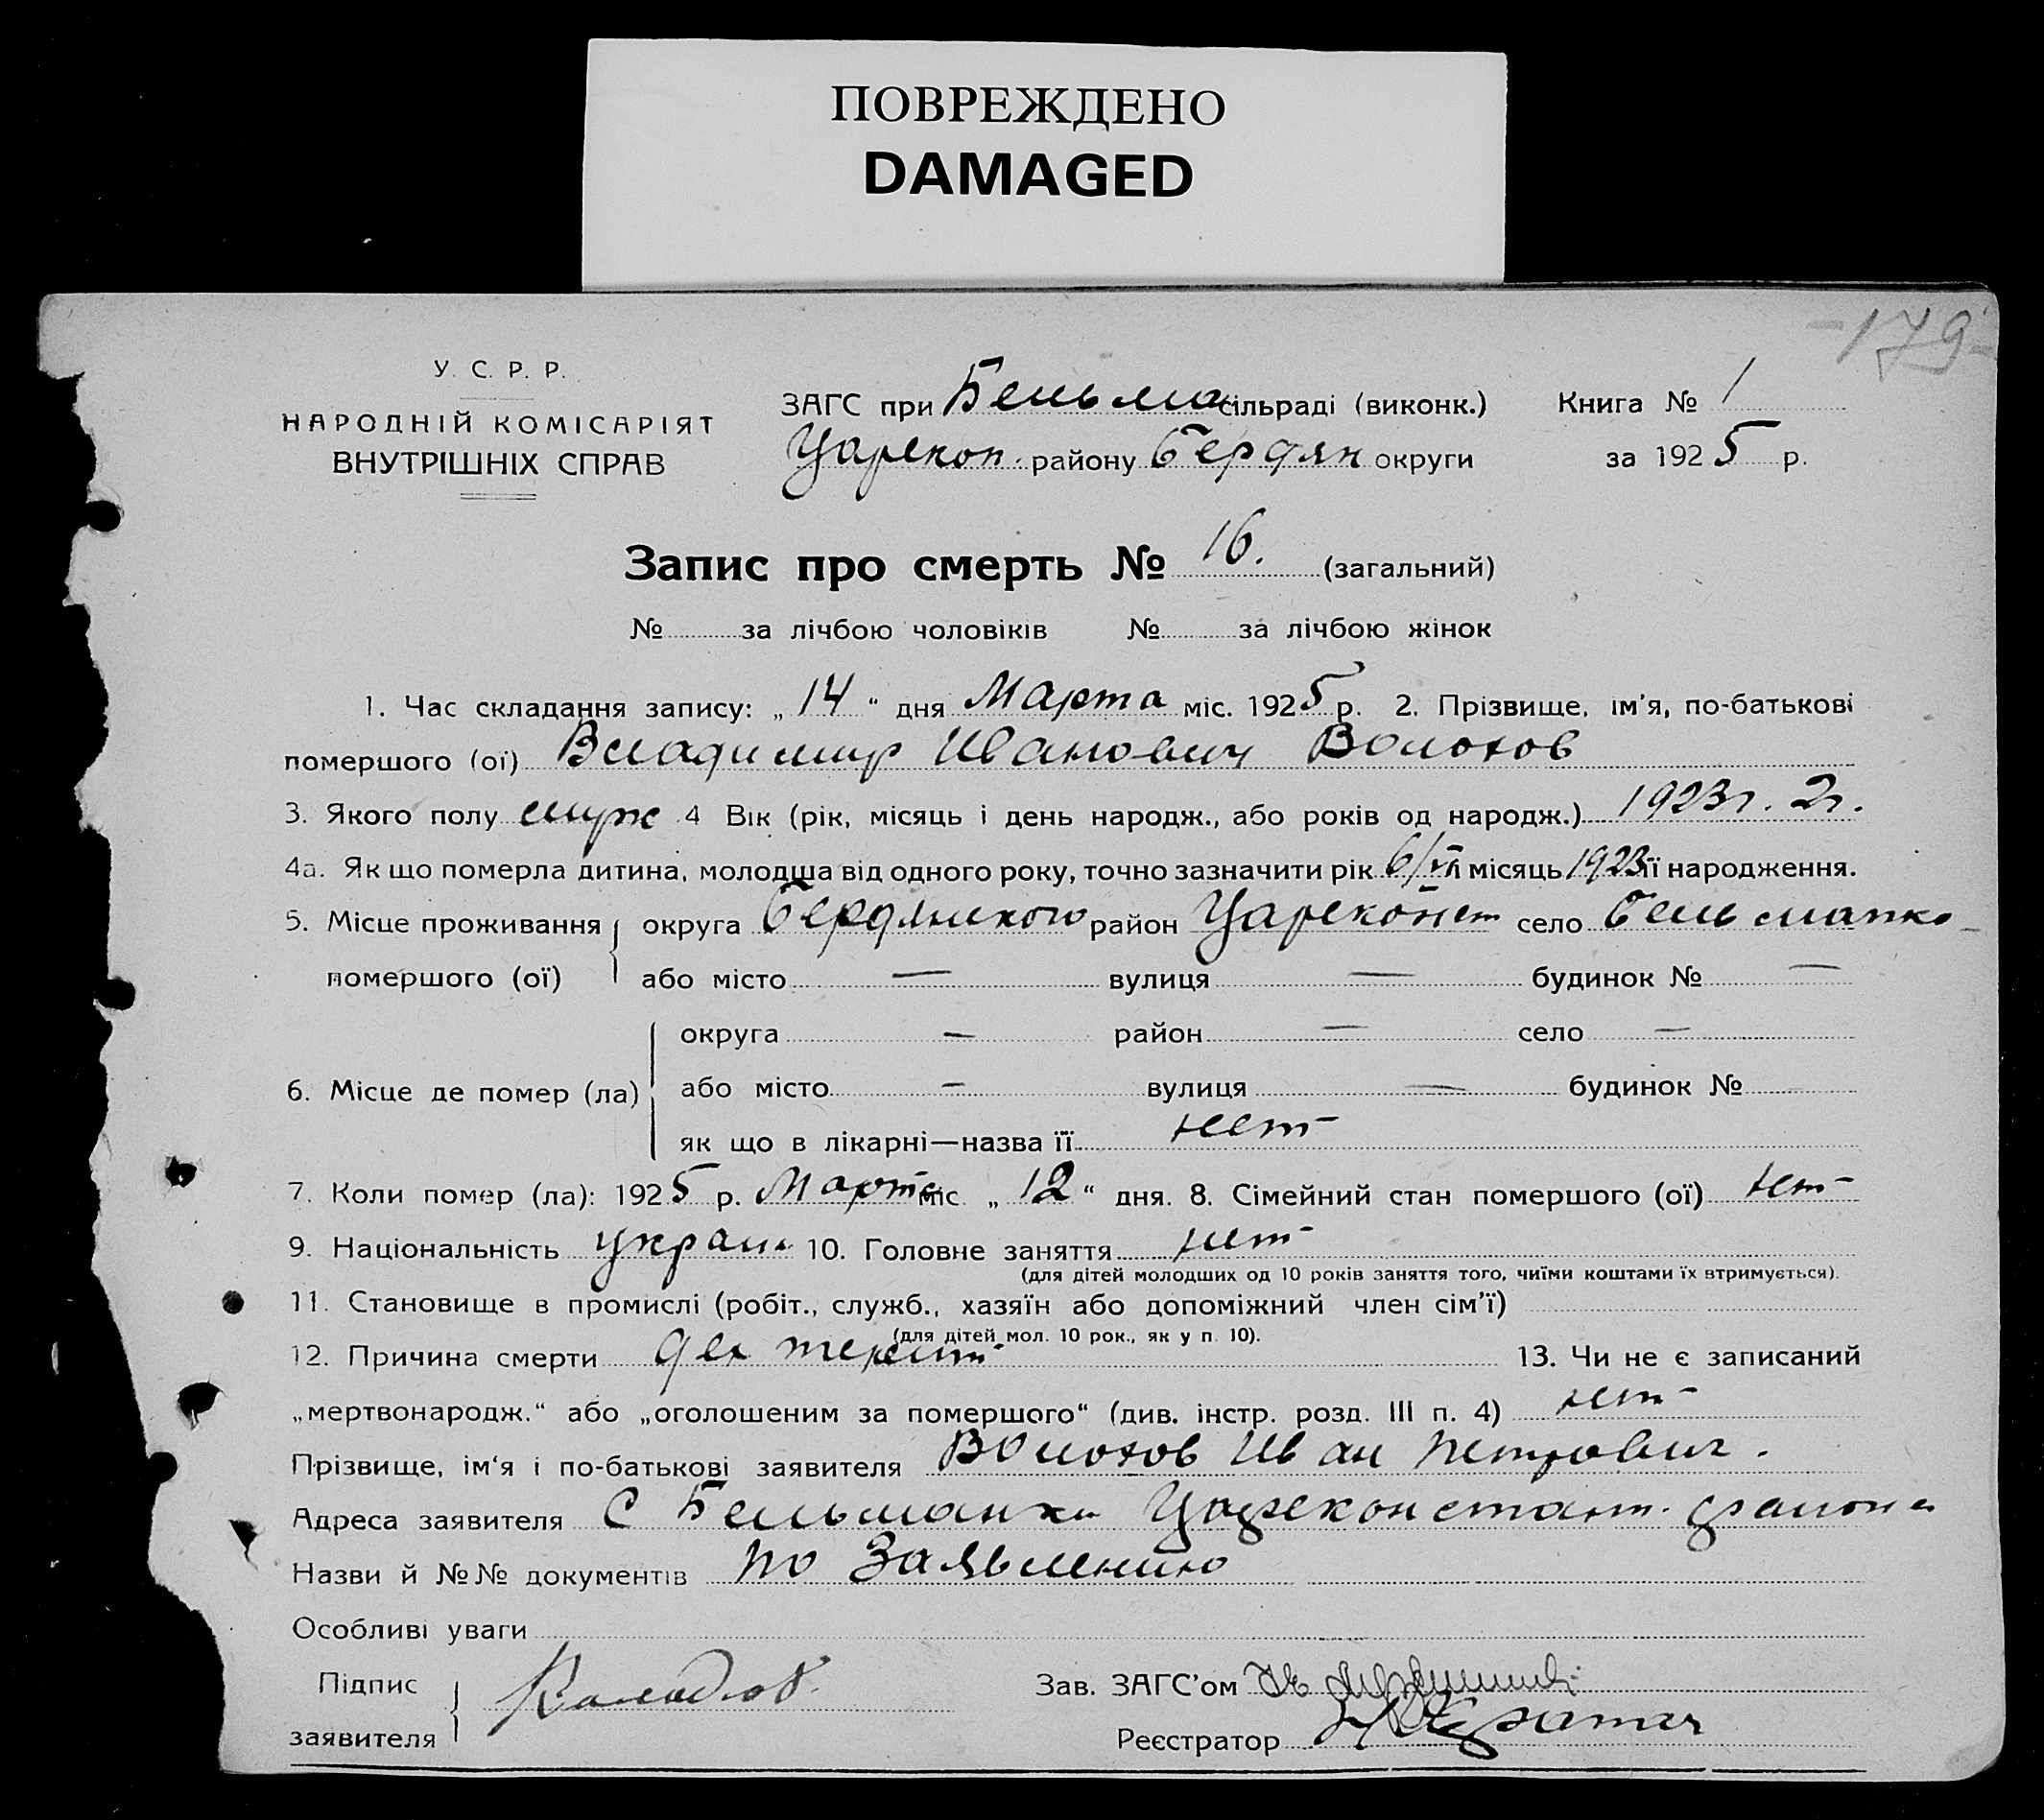 ПОВРЕЖДЕНО
DAMAGED
-179-
У. С. Р. Р.
НАРОДНІЙ КОМІСАРІЯТ
ВНУТРІШНІХ СПРАВ
ЗАГС при Бельма сільраді (виконк.) Книга № 1
Царекон. району Бердян округи за 1925 р.
Запис про смерть № 16. (загальний)
№ за лічбою чоловіків № за лічбою жінок
1. Час складання запису: „14“ дня Марта міс. 1925 р. 2. Прізвище, ім'я, по-батькові
помершого (ої) Владимир Иванович Волохов
3. Якого полу муж 4 Вік (рік, місяць і день народж., або років од народж.) 1923 г. 2 г.
4а. Як що померла дитина, молодша від одного року, точно зазначити рік 6/VI місяць 1923 її народження.
5. Місце проживання округа Бердянского район Цареконст село Бельманка
помершого (ої) або місто — вулиця — будинок № —
округа — район — село —
6. Місце де помер (ла) або місто — вулиця — будинок №
як що в лікарні—назва її нет
7. Коли помер (ла): 1925 р. Марта міс. „12“ дня. 8. Сімейний стан помершого (ої) нет
9. Національність украин 10. Головне заняття нет
(для дітей молодших од 10 років заняття того, чиїми коштами їх втримується).
11. Становище в промислі (робіт., служб., хазяїн або допоміжний член сім'ї)
(для дітей мол. 10 рок., як у п. 10).
12. Причина смерти 13. Чи не є записаний
„мертвонародж.“ або „оголошеним за помершого“ (див. інстр. розд. III п. 4) нет
Прізвище, ім'я і по-батькові заявителя Волохов Иван Петрович.
Адреса заявителя С Бельманки Цареконстант. района
Назви й №№ документів по Заявлению
Особливі уваги
Підпис Зав. ЗАГС'ом
заявителя Реєстратор